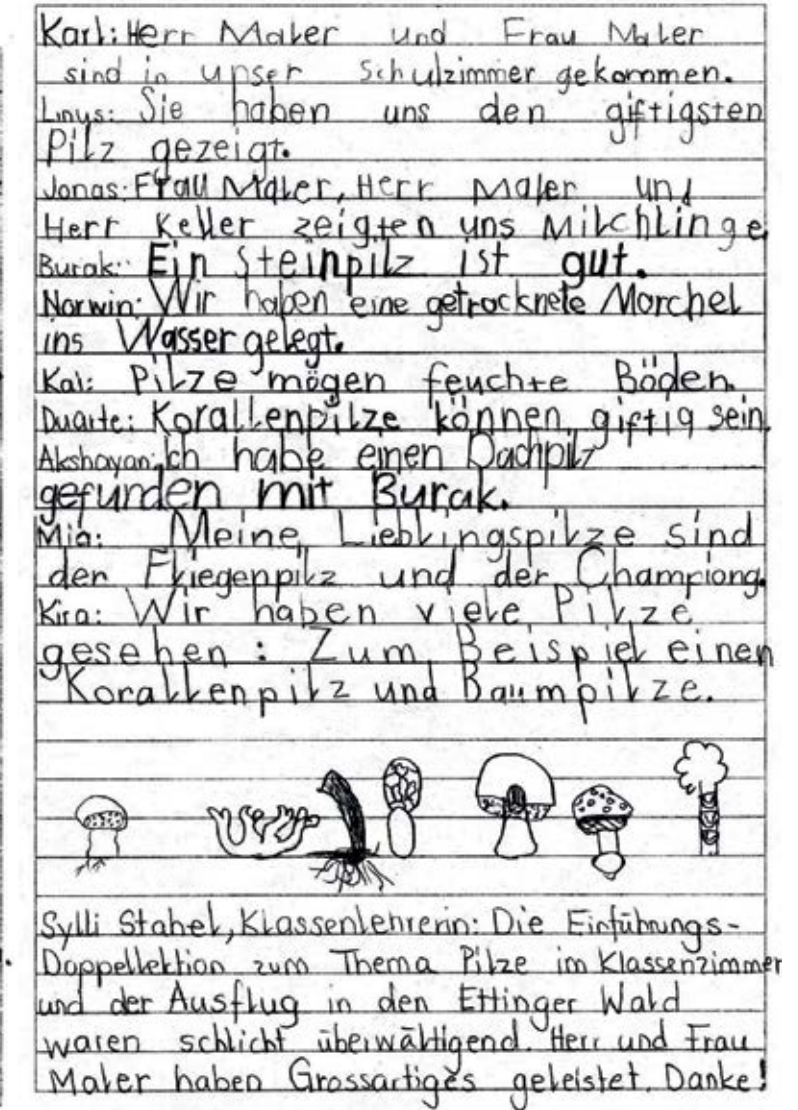 Karl: Herr Maler und Frau Maler
sind in unser Schulzimmer gekommen.
Linus: Sie haben uns den giftigsten
Pilz gezeigt.
Jonas: Frau Maler, Herr Maler und
Herr Keller zeigten uns Milchlinge.
Burak: Ein Steinpilz ist gut.
Norwin: Wir haben eine getrocknete Morchel
ins Wasser gelegt.
Kai: Pilze mögen feuchte Böden.
Duarte: Korallenpilze können giftig sein.
Akshayan: Ich habe einen Dachpilz
gefunden mit Burak.
Mia: Meine Lieblingspilze sind
der Fliegenpilz und der Championg.
Kira: Wir haben viele Pilze
gesehen: Zum Beispiel einen
Korallenpilz und Baumpilze.
Sylli Stahel, Klassenlehrerin: Die Einführungs-
Doppellektion zum Thema Pilze im Klassenzimmer
und der Ausflug in den Ettinger Wald
waren schlicht überwältigend. Herr und Frau
Maler haben Grossartiges geleistet. Danke!